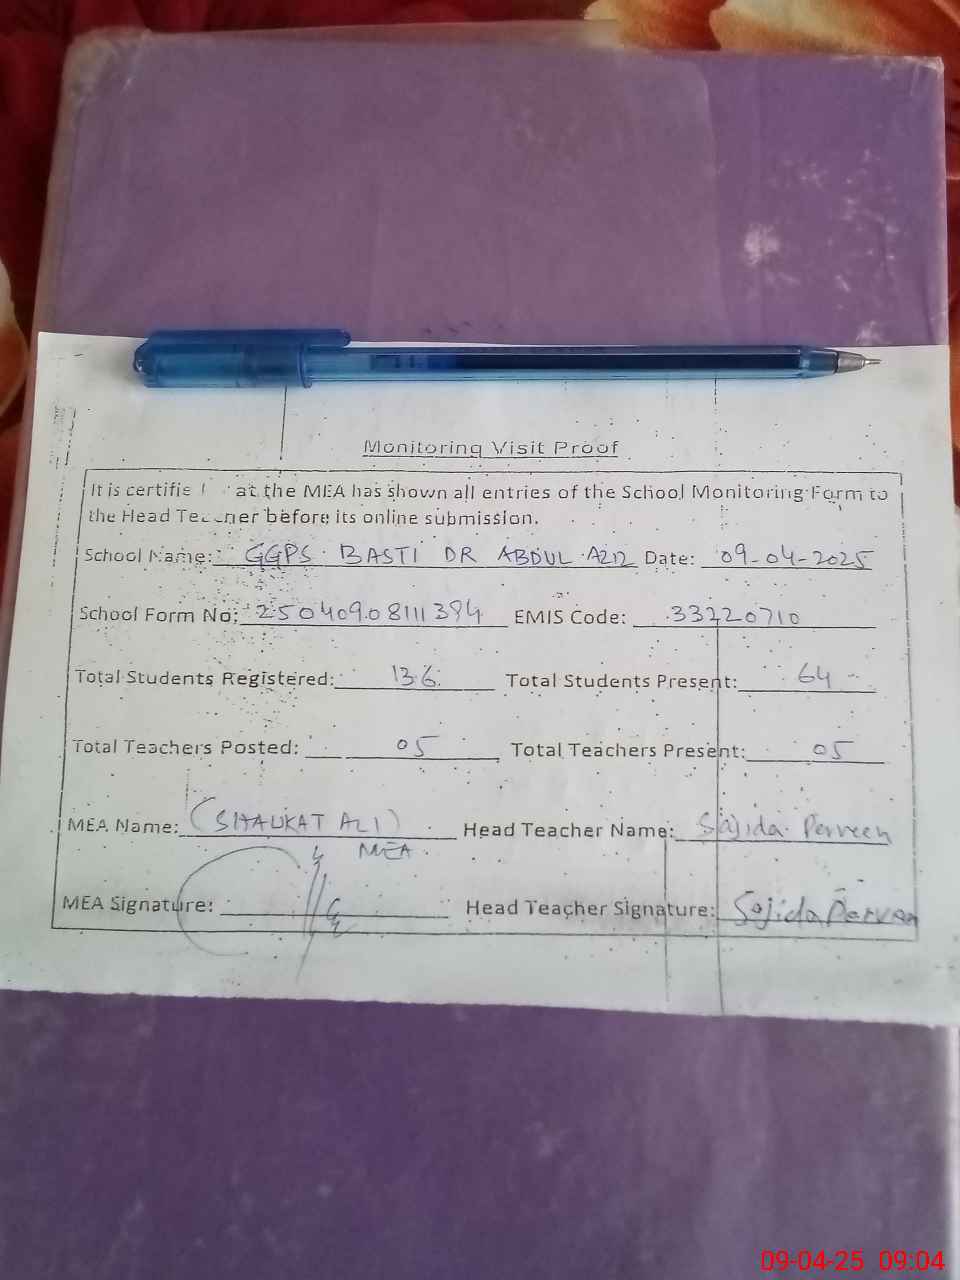 Monitoring Visit Proof
It is certifie at the MEA has shown all entries of the School Monitoring Form to
the Head Teacher before its online submission.
School Name: GGPS BASTI DR ABDUL AZIZ Date: 09-04-2025
School Form No: 25040908111394 EMIS Code: 33220710
Total Students Registered: 136 Total Students Present: 64
Total Teachers Posted: 05 Total Teachers Present: 05
MEA Name: (SHAUKAT ALI) Head Teacher Name: Sajida Perveen
MEA
MEA Signature: Head Teacher Signature: Sajida Perveen
09-04-25 09:04